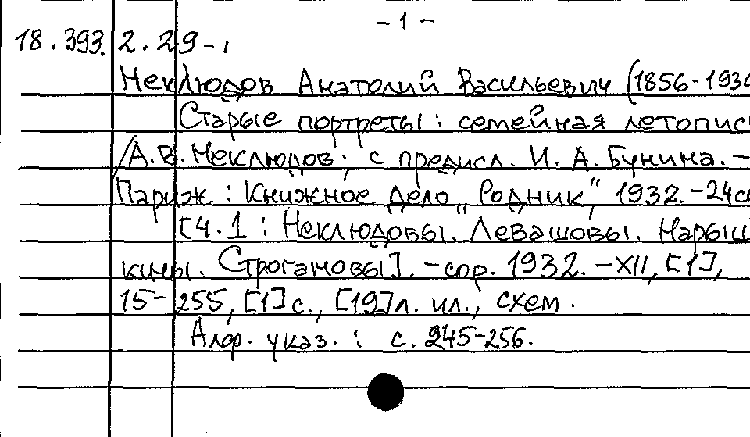 - 1 -
18.393. 2.29-1
Неклюдов Анатолий Васильевич (1856-1934
Старые портреты : семейная летопис
/А.В. Неклюдов ; с предисл. И. А. Бунина. -
Париж : Книжное дело „Родник", 1932. - 24см
[Ч. 1 : Неклюдовы. Левашовы. Нарыш
кины. Строгановы]. - cop. 1932. - XII, [1],
15-255, [1] с., [19] л. ил., схем.
Алф. указ. : с. 245-256.